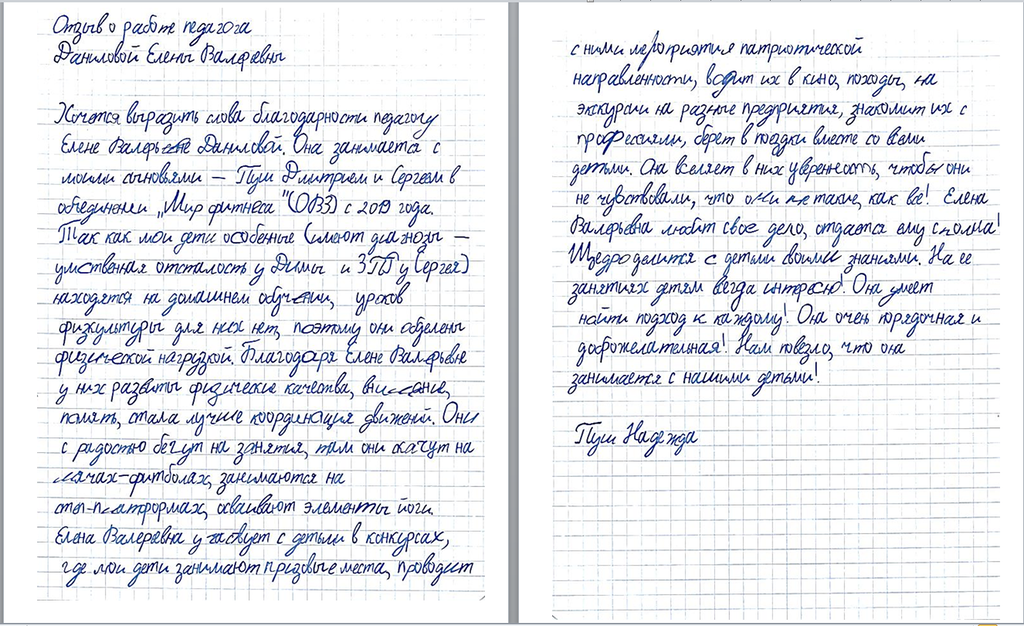 Отзыв о работе педагога
Даниловой Елены Валерьевны
Хочется выразить слова благодарности педагогу
Елене Валерьевне Даниловой. Она занимается с
моими сыновьями — Пуш Дмитрием и Сергеем в
объединении „Мир фитнеса" (ОВЗ) с 2019 года.
Так как мои дети особенные (имеют диагнозы —
умственная отсталость у Димы и ЗПР у Сергея)
находятся на домашнем обучении, уроков
физкультуры для них нет, поэтому они обделены
физической нагрузкой. Благодаря Елене Валерьевне
у них развиты физические качества, внимание,
память, стала лучше координация движений. Они
с радостью бегут на занятия, там они скачут на
мячах-фитболах, занимаются на
степ-платформах, осваивают элементы йоги.
Елена Валерьевна участвует с детьми в конкурсах,
где мои дети занимают призовые места, проводит
с ними мероприятия патриотической
направленности, водит их в кино, походы, на
экскурсии на разные предприятия, знакомит их с
профессиями, берет в поездки вместе со всеми
детьми. Она вселяет в них уверенность, чтобы они
не чувствовали, что они не такие, как все! Елена
Валерьевна любит свое дело, отдается ему сполна!
Щедро делится с детьми своими знаниями. На ее
занятиях детям всегда интересно! Она умеет
найти подход к каждому! Она очень порядочная и
доброжелательная! Нам повезло, что она
занимается с нашими детьми!
Пуш Надежда